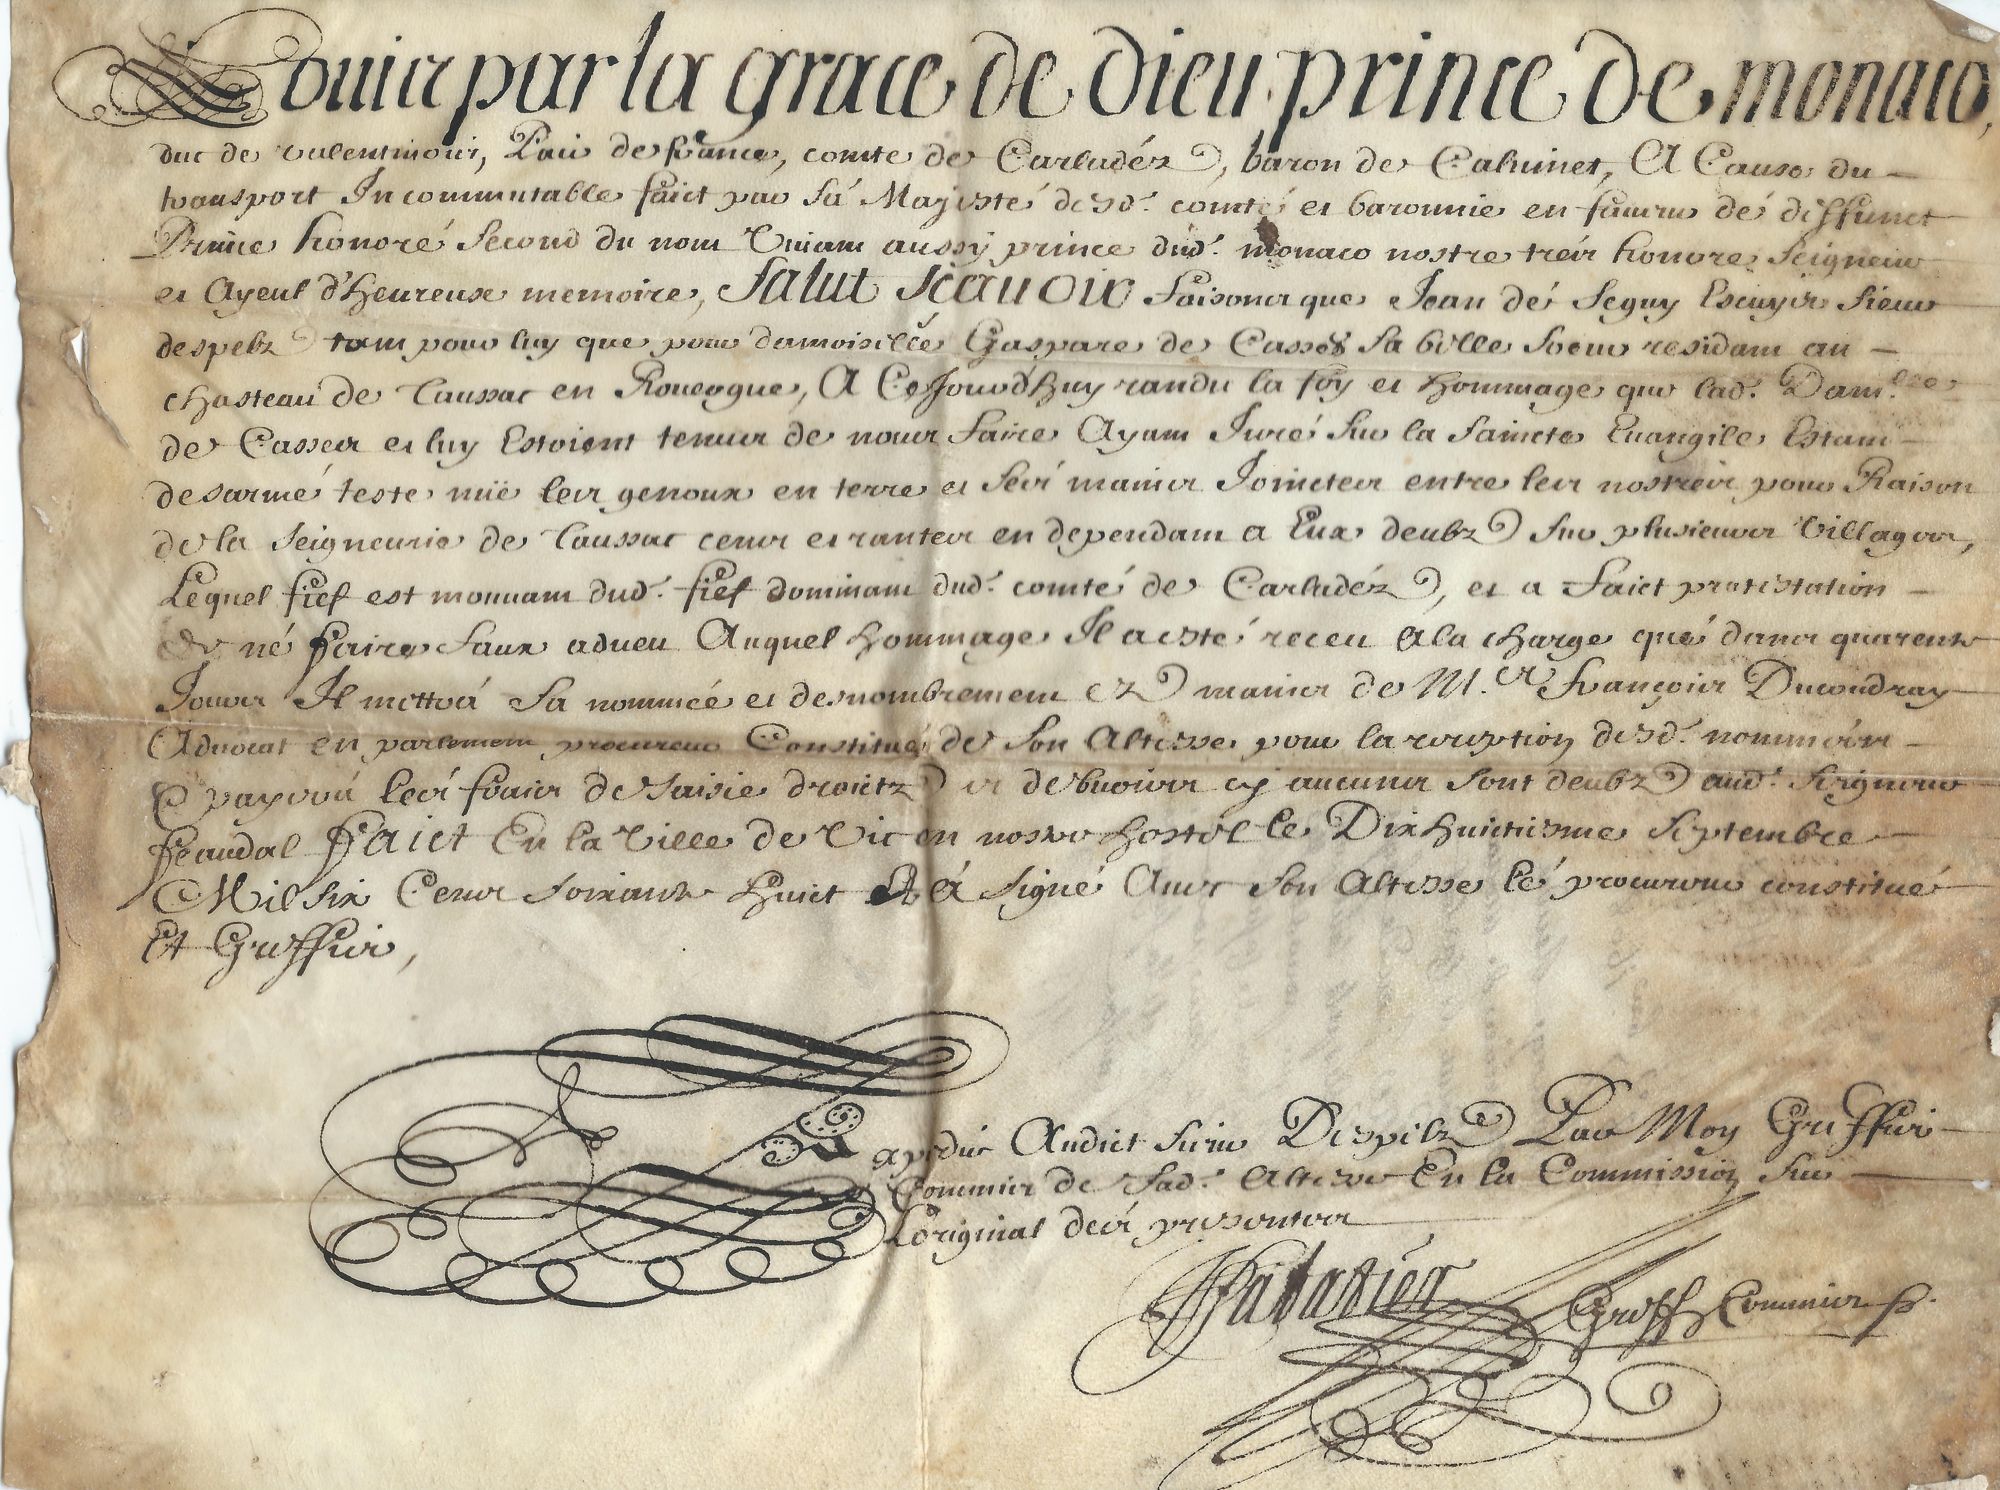 Louis par la grace de dieu prince de monaco,
duc de valentinois, Pair de france, comte de Carladéz, baron de Caluinet, A Cause du
transport Incommutable faict par sa Majesté desd. comté et baronnie en faueur dé deffunct
Prince honoré second du nom viuant aussy prince dud. monaco nostre trés honoré seigneur
et Ayeul d'heureuse memoire, Salut scauoir faisons que Jean dé Seguy Escuyer sieur
despelz tant pour luy que pour damoiselle Gaspare de Casses sa belle soeur residant au
chasteau de Taussac en Rouergue, A Cejourd'huy randu la foy et hommage que lad. Dam.lle
de Casses et luy Estoient tenus de nous faire Ayant Juré sur la saincte Euangile Estant
desarmé teste nüe les genoux en terre et sés mains Joinctes entre les nostres pour Raison
de la seigneurie de Taussac cens et rantes en dependant a Eux deubz sur plusieurs Villages,
Lequel fief est mouuant dud. fief dominant dud. comté de Carladéz, et a faict protestation
de né faire faux adueu Auquel hommage Il a esté receu a la charge qué dans quarente
Jours Il mettrá sa nommée et desnombrement ez mains de M.er françois Ducoudray
Aduocat en parlement procureur Constitué de son Altesse pour la reception desd. nommées
& payerá lés frais de saisie droictz et debuoirs cy aucuns sont deubz aud. seigneur
feaudal faict En la Ville de Vic en nostre hostél le Dixhuictiesme septembre
Mil six Cens soixante huict Et á signé Auec son Altesse lé procureur constitué
Et Greffier,
Expédié Audict sieur Despelz Par Moy Greffier
Commis de sad. Altesse En la Commission sur
Loriginal dés presentes
Sabatier Greff. Commis